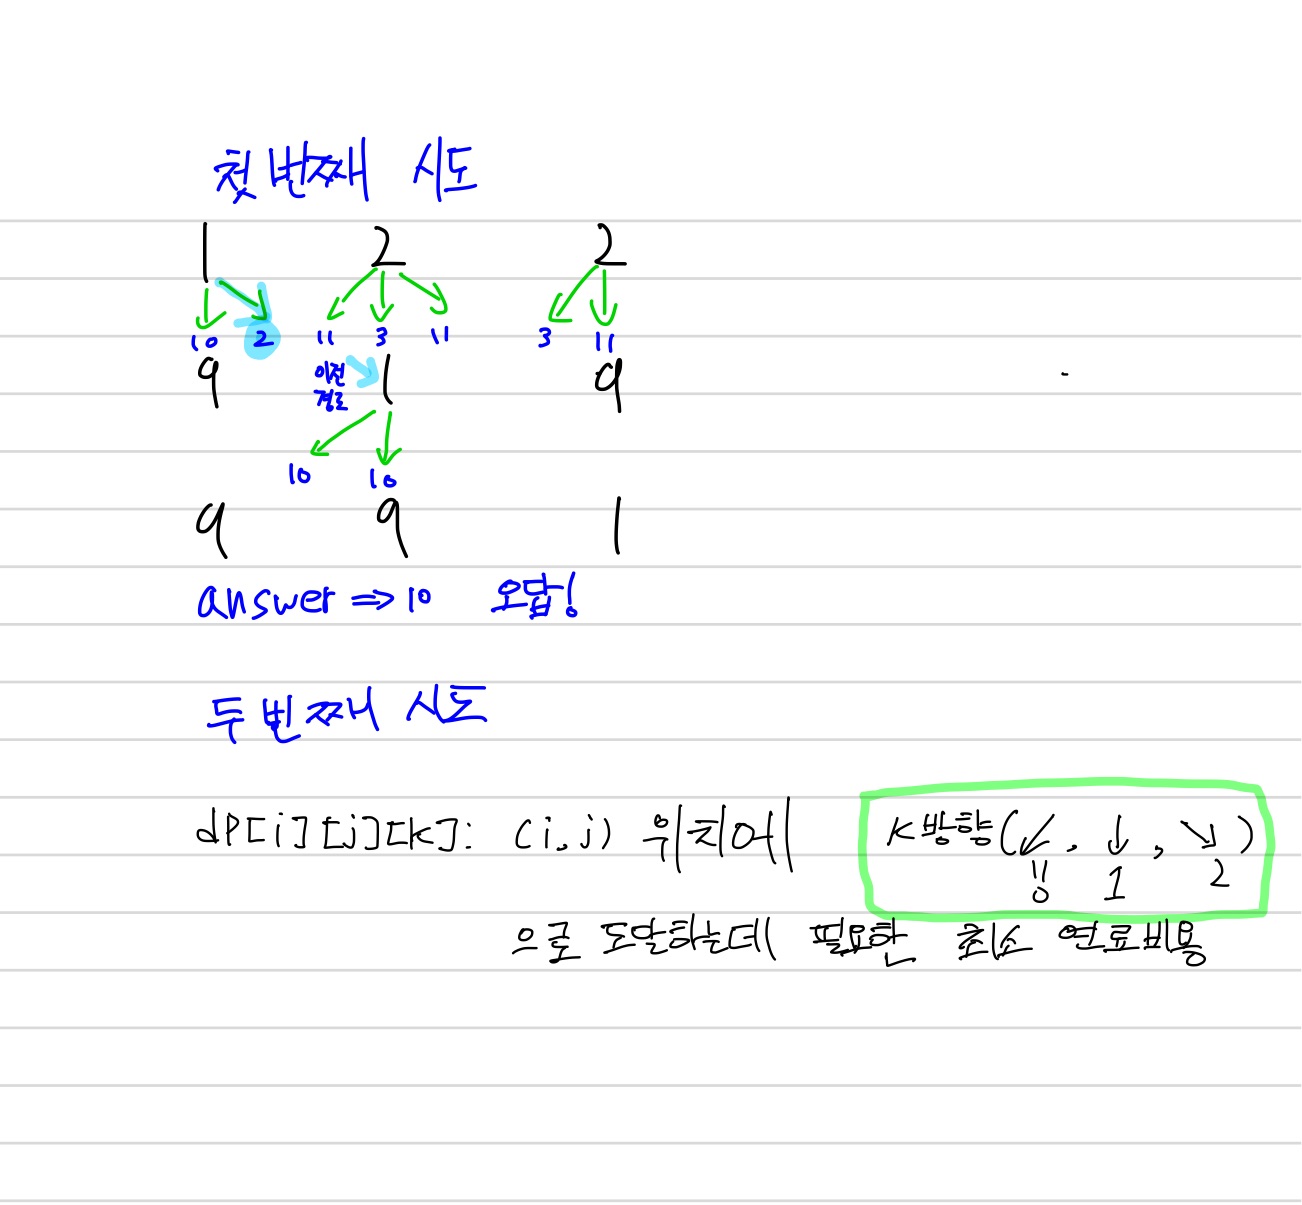 첫 번째 시도
1 2 2
10 2 11 3 11 3 11
9 이전 1 9
경로
10 10
9 9 1
answer ⇒ 10 오답!
두 번째 시도
dp[i][j][k]: (i,j) 위치에 K방향(↙, ↓, ↘)
0 1 2
으로 도달하는데 필요한 최소 연료비용